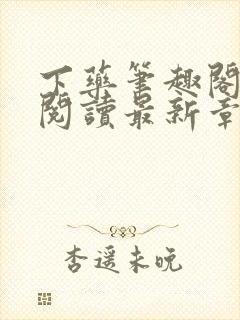 下藥筆趣閣
閱讀最新章
杏遥未晚